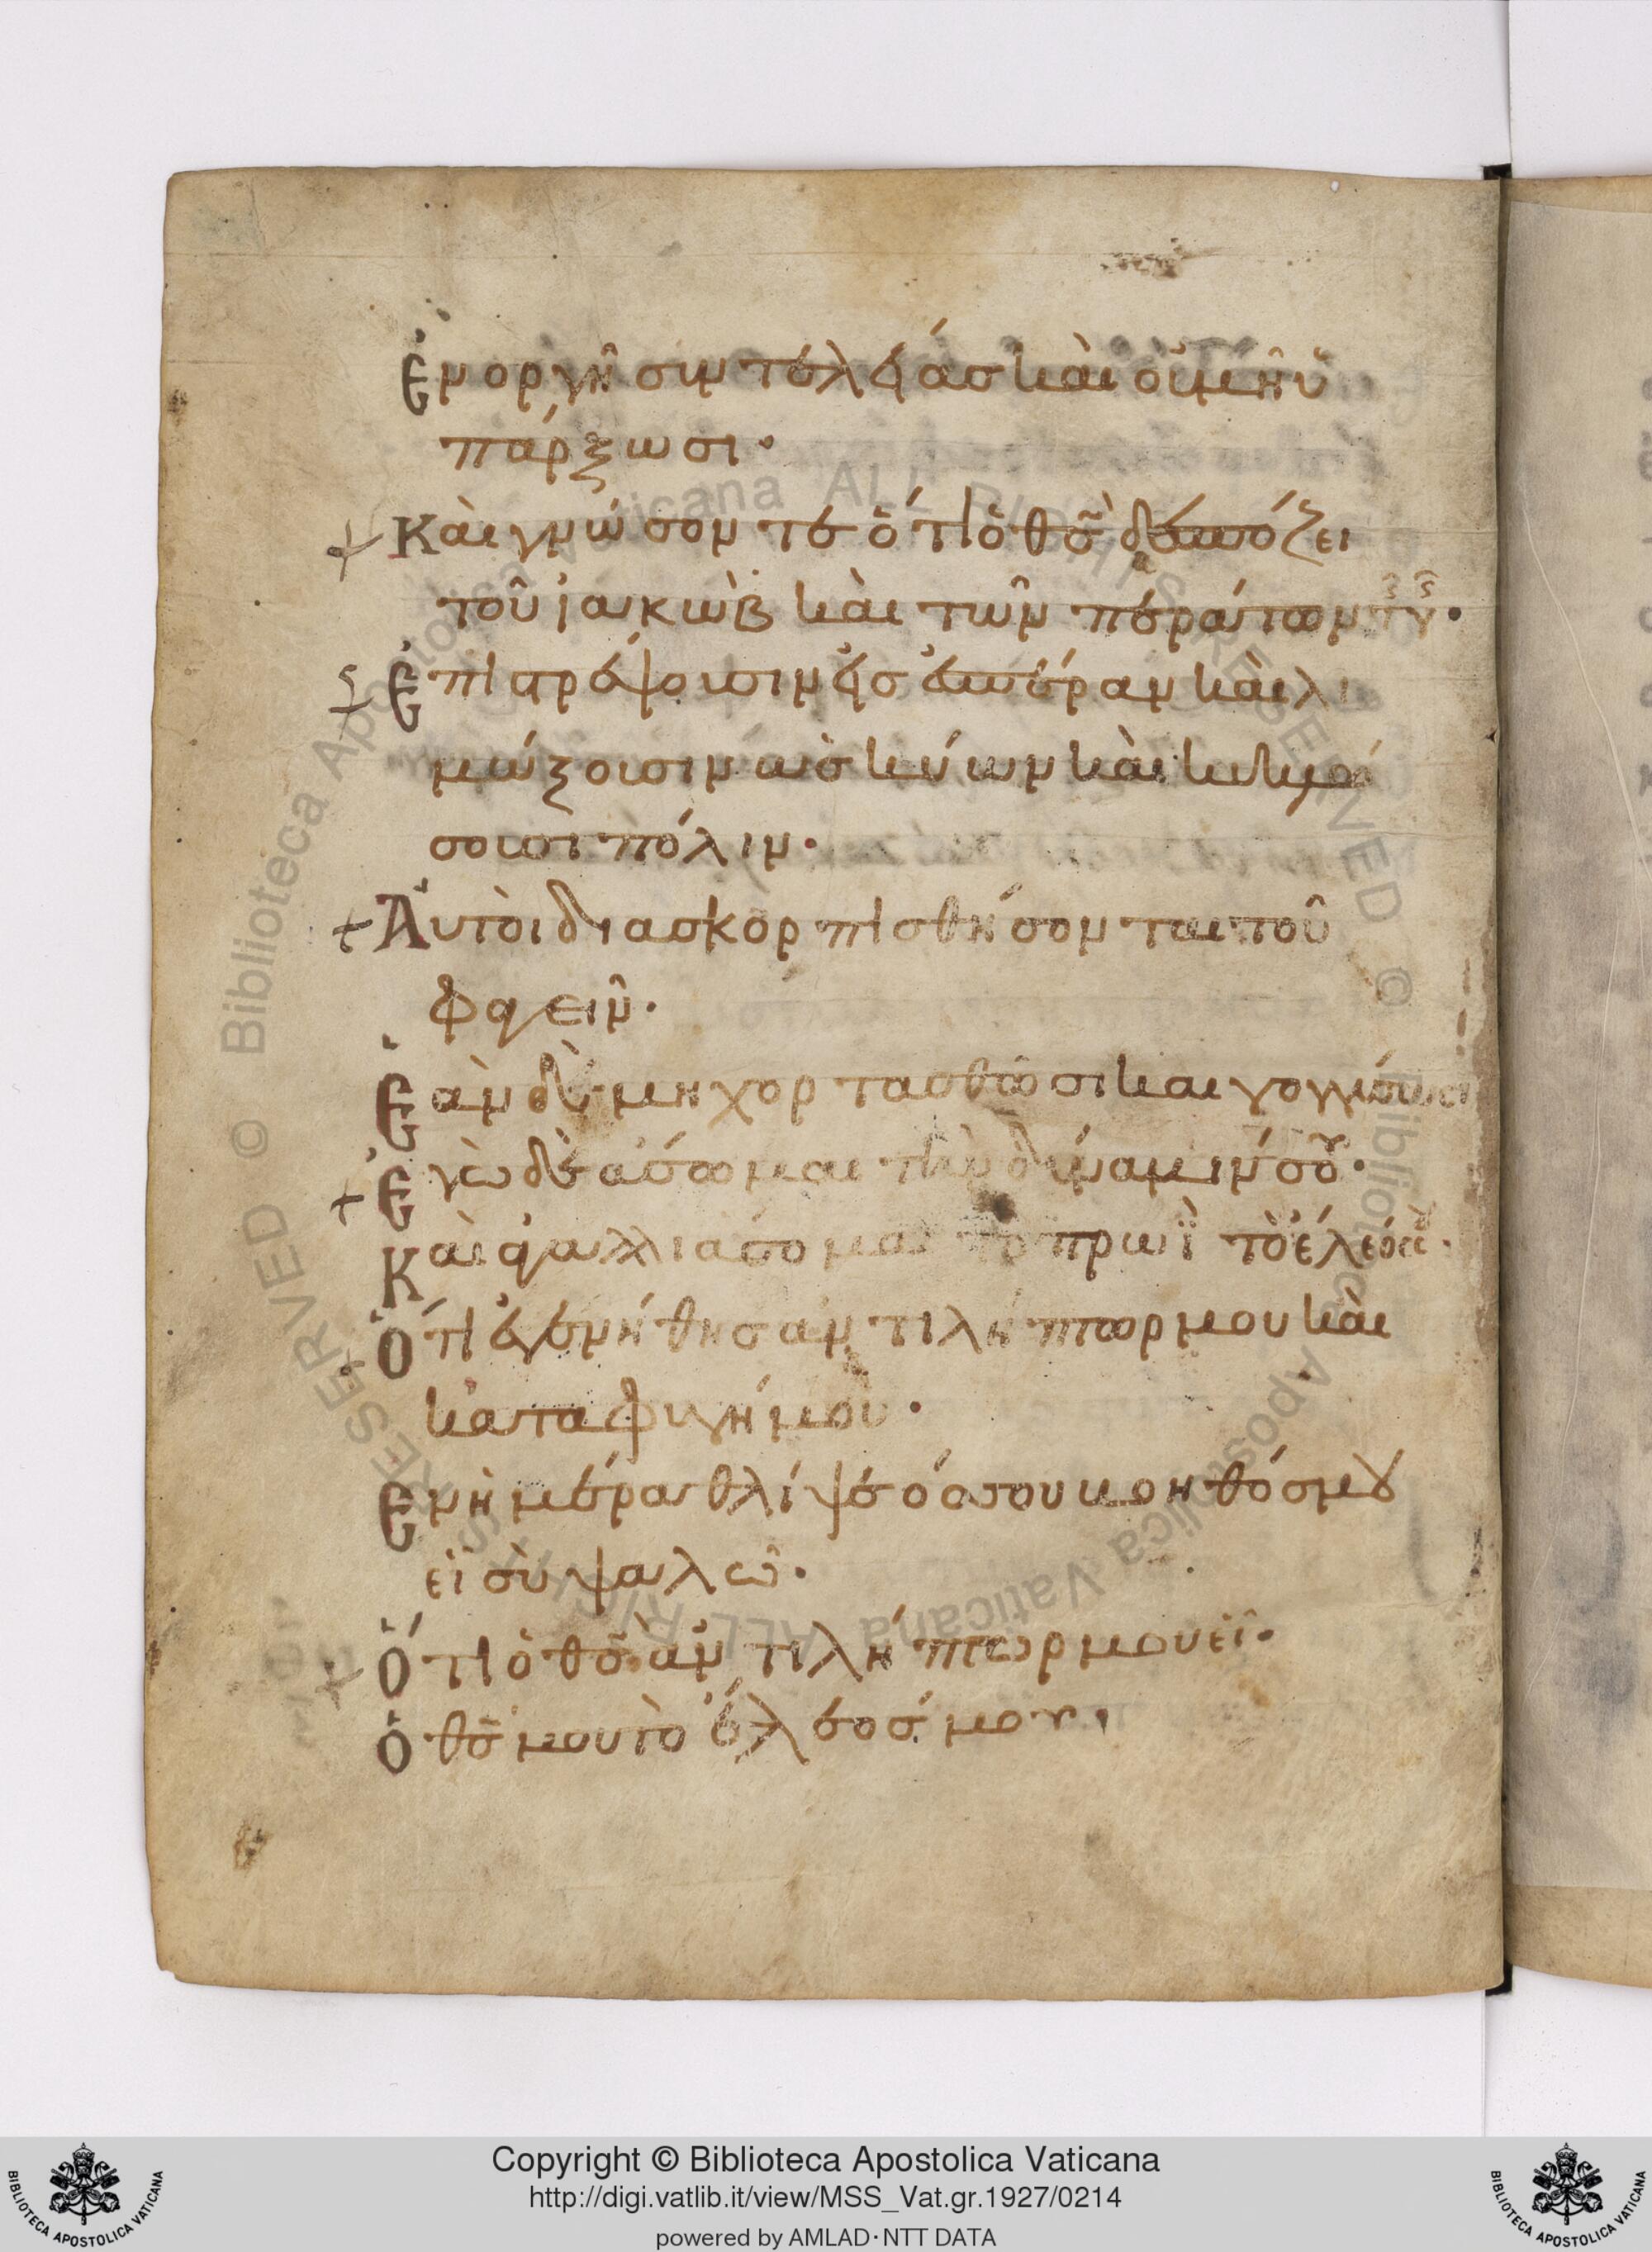 Ἐν ὀργῆ συντελείας καὶ οὐ μὴ ὑ
πάρξωσι·
Καὶ γνώσονται ὅτι ὁ θς̄ δεσπόζει
τοῦ ἰακὼβ καὶ τῶν περάτων τ γ·
Ἐπιστρέψουσιν εἰς ἑσπέραν καὶ λι
μώξουσιν ὡς κύων καὶ κυκλώ
σουσι πόλιν·
Αὐτοὶ διασκορπισθήσονται τοῦ
φαγεῖν·
Ἐὰν δὲ μη χορτασθῶσι και γογγύσωσι
Ἐγὼ δὲ ἄσωμαι τὴν δύναμίν σου·
Καὶ ἀγαλλιάσομαι το πρωῒ τὸ ἔλεός σου·
Ὅτι ἐγενήθης ἀντιλήπτωρ μου καὶ
καταφυγή μου·
Ἐν ἡμέρα θλίψεώς μου βοηθός μου
εἶ σὺ ψαλῶ·
Ὅτι ὁ θς̄ ἀντιλήπτωρ μου εἶ·
ὁ θς̄ μου τὸ ἔλεός μου·
© Biblioteca Apostolica Vaticana ALL RIGHTS RESERVED
Copyright © Biblioteca Apostolica Vaticana
http://digi.vatlib.it/view/MSS_Vat.gr.1927/0214
powered by AMLAD·NTT DATA
BIBLIOTECA APOSTOLICA VATICANA
BIBLIOTECA APOSTOLICA VATICANA